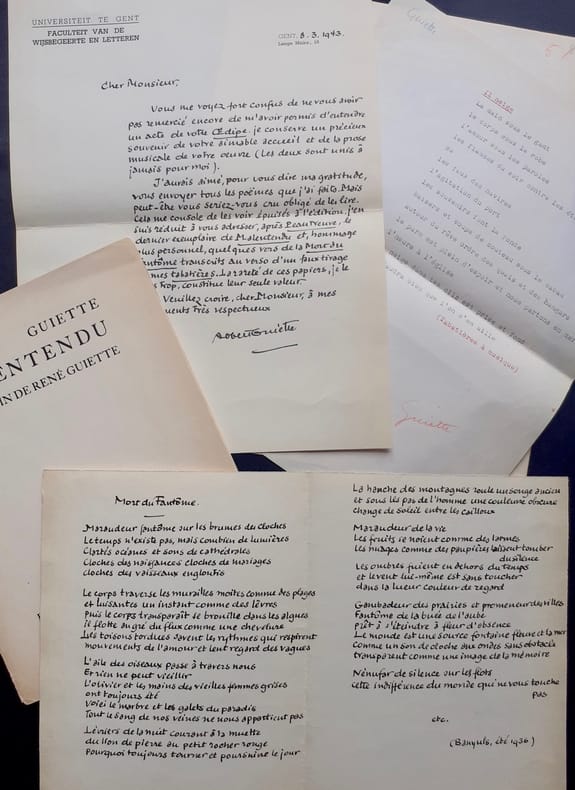 UNIVERSITEIT TE GENT
FACULTEIT VAN DE
WIJSBEGEERTE EN LETTEREN
GENT, 8.3.1943.
Lange Meire, 15
Cher Monsieur,
Vous me voyez fort confus de ne vous avoir
pas remercié encore de m'avoir permis d'entendre
un acte de votre Œdipe. je conserve un précieux
souvenir de votre aimable accueil et de la prose
musicale de votre oeuvre (les deux sont unis à
jamais pour moi).
J'aurais aimé, pour vous dire ma gratitude,
vous envoyer tous les poèmes que j'ai faits. Mais
peut-être vous seriez-vous cru obligé de les lire.
Cela me console de les voir épuisés à l'édition. j'en
suis réduit à vous adresser, après Peau Neuve, le
dernier exemplaire de Malentendu et, hommage
plus personnel, quelques vers de la Mort du
Fantôme transcrits au verso d'un faux tirage
mes tabatières. La rareté de ces papiers, je le
trop, constitue leur seule valeur
Veuillez croire, cher Monsieur, à mes
très respectueux
Robert Guiette
Guiette
il neige
La main sous le gant
le corps sous la robe
l'amour sous les paroles
les flammes du soir contre les
les feux des navires
l'agitation du port
les danseurs sont la ronde
baisers et coups de couteau sous le
autour du rêve
le parc est plein d'espoir et nous partons en mer
l'heure à l'église
que l'on s'en aille
(Tabatières à musique)
Guiette
GUIETTE
ENTENDU
IN DE RENÉ GUIETTE
Mort du Fantôme.
Maraudeur fantôme sur les brumes des cloches
Le temps n'existe pas, mais combien de lumières
Clartés océanes et sons de cathédrales
Cloches des naissances cloches de mariages
cloches des vaisseaux engloutis
Le corps traverse les murailles moites comme des plages
et luisantes un instant comme des lèvres
Puis le corps transparaît se brouille dans les algues
il flotte angle du flux comme une chevelure
Les toisons tordues savent les rythmes qui respirent
mouvements de l'amour et lent regard des vagues
L'aile des oiseaux passe à travers nous
Et rien ne peut vieillir
L'olivier et les mains des vieilles femmes grises
ont toujours été
Voici le marbre et les galets du paradis
Tout le sang de nos veines ne nous appartient pas
Lévriers de la nuit courant à la muette
du lion de pierre au petit rocher rouge
Pourquoi toujours tourner et poursuivre le jour
La hanche des montagnes roule un songe ancien
et sous les pas de l'homme une couleur obscure
change de soleil entre les cailloux
Maraudeur de la vie
Les fruits se noient comme des larmes
Les nuages comme des paupières laissent tomber
du silence
Les ombres fuient en dehors du temps
et le vent lui-même est sans toucher
dans la lueur couleur de regard
Gambadeur des prairies et promeneur des villes
Fantôme de la buée de l'aube
Prêt à s'éteindre à fleur d'absence
Le monde est une source fontaine fleuve et la mer
comme un son de cloche aux ondes sans obstacle
transparent comme une image de la mémoire
Nénufar de silence sur les flots
cette indifférence du monde qui ne vous touche
pas
etc.
(Banyuls, été 1936)